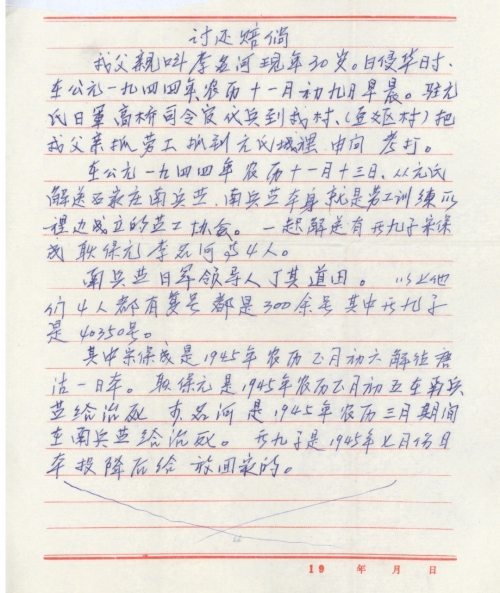 讨还赔偿
我父亲叫李名河现年30岁。日侵华日时、
在公元一九四四年农历十一月初九日早晨。驻元
氏日军高桥司令官代兵到我村、(豆妪村)把
我父亲抓劳工抓到元氏城裡 审问 拷打。
在公元一九四四年农历十一月十三日、从元氏
解送石家庄南兵营、南兵营本身就是劳工训练所
裡边成立的劳工协会。一起解送有 九子宋保
成 耿保元 李名河 等4人。
南兵营日军领导人 其道田。以上他
们4人都有番号 都是300余号 其中 九子
是40350号。
其中宋保成是1945年农历正月初六解往唐
沽一日本。耿保元是1945年农历正月初五在南兵
营给治死 李名河是1945年农历三月期间
在南兵营给治死。 九子是1945年七月份日
本投降后给放回家的。
19 年 月 日